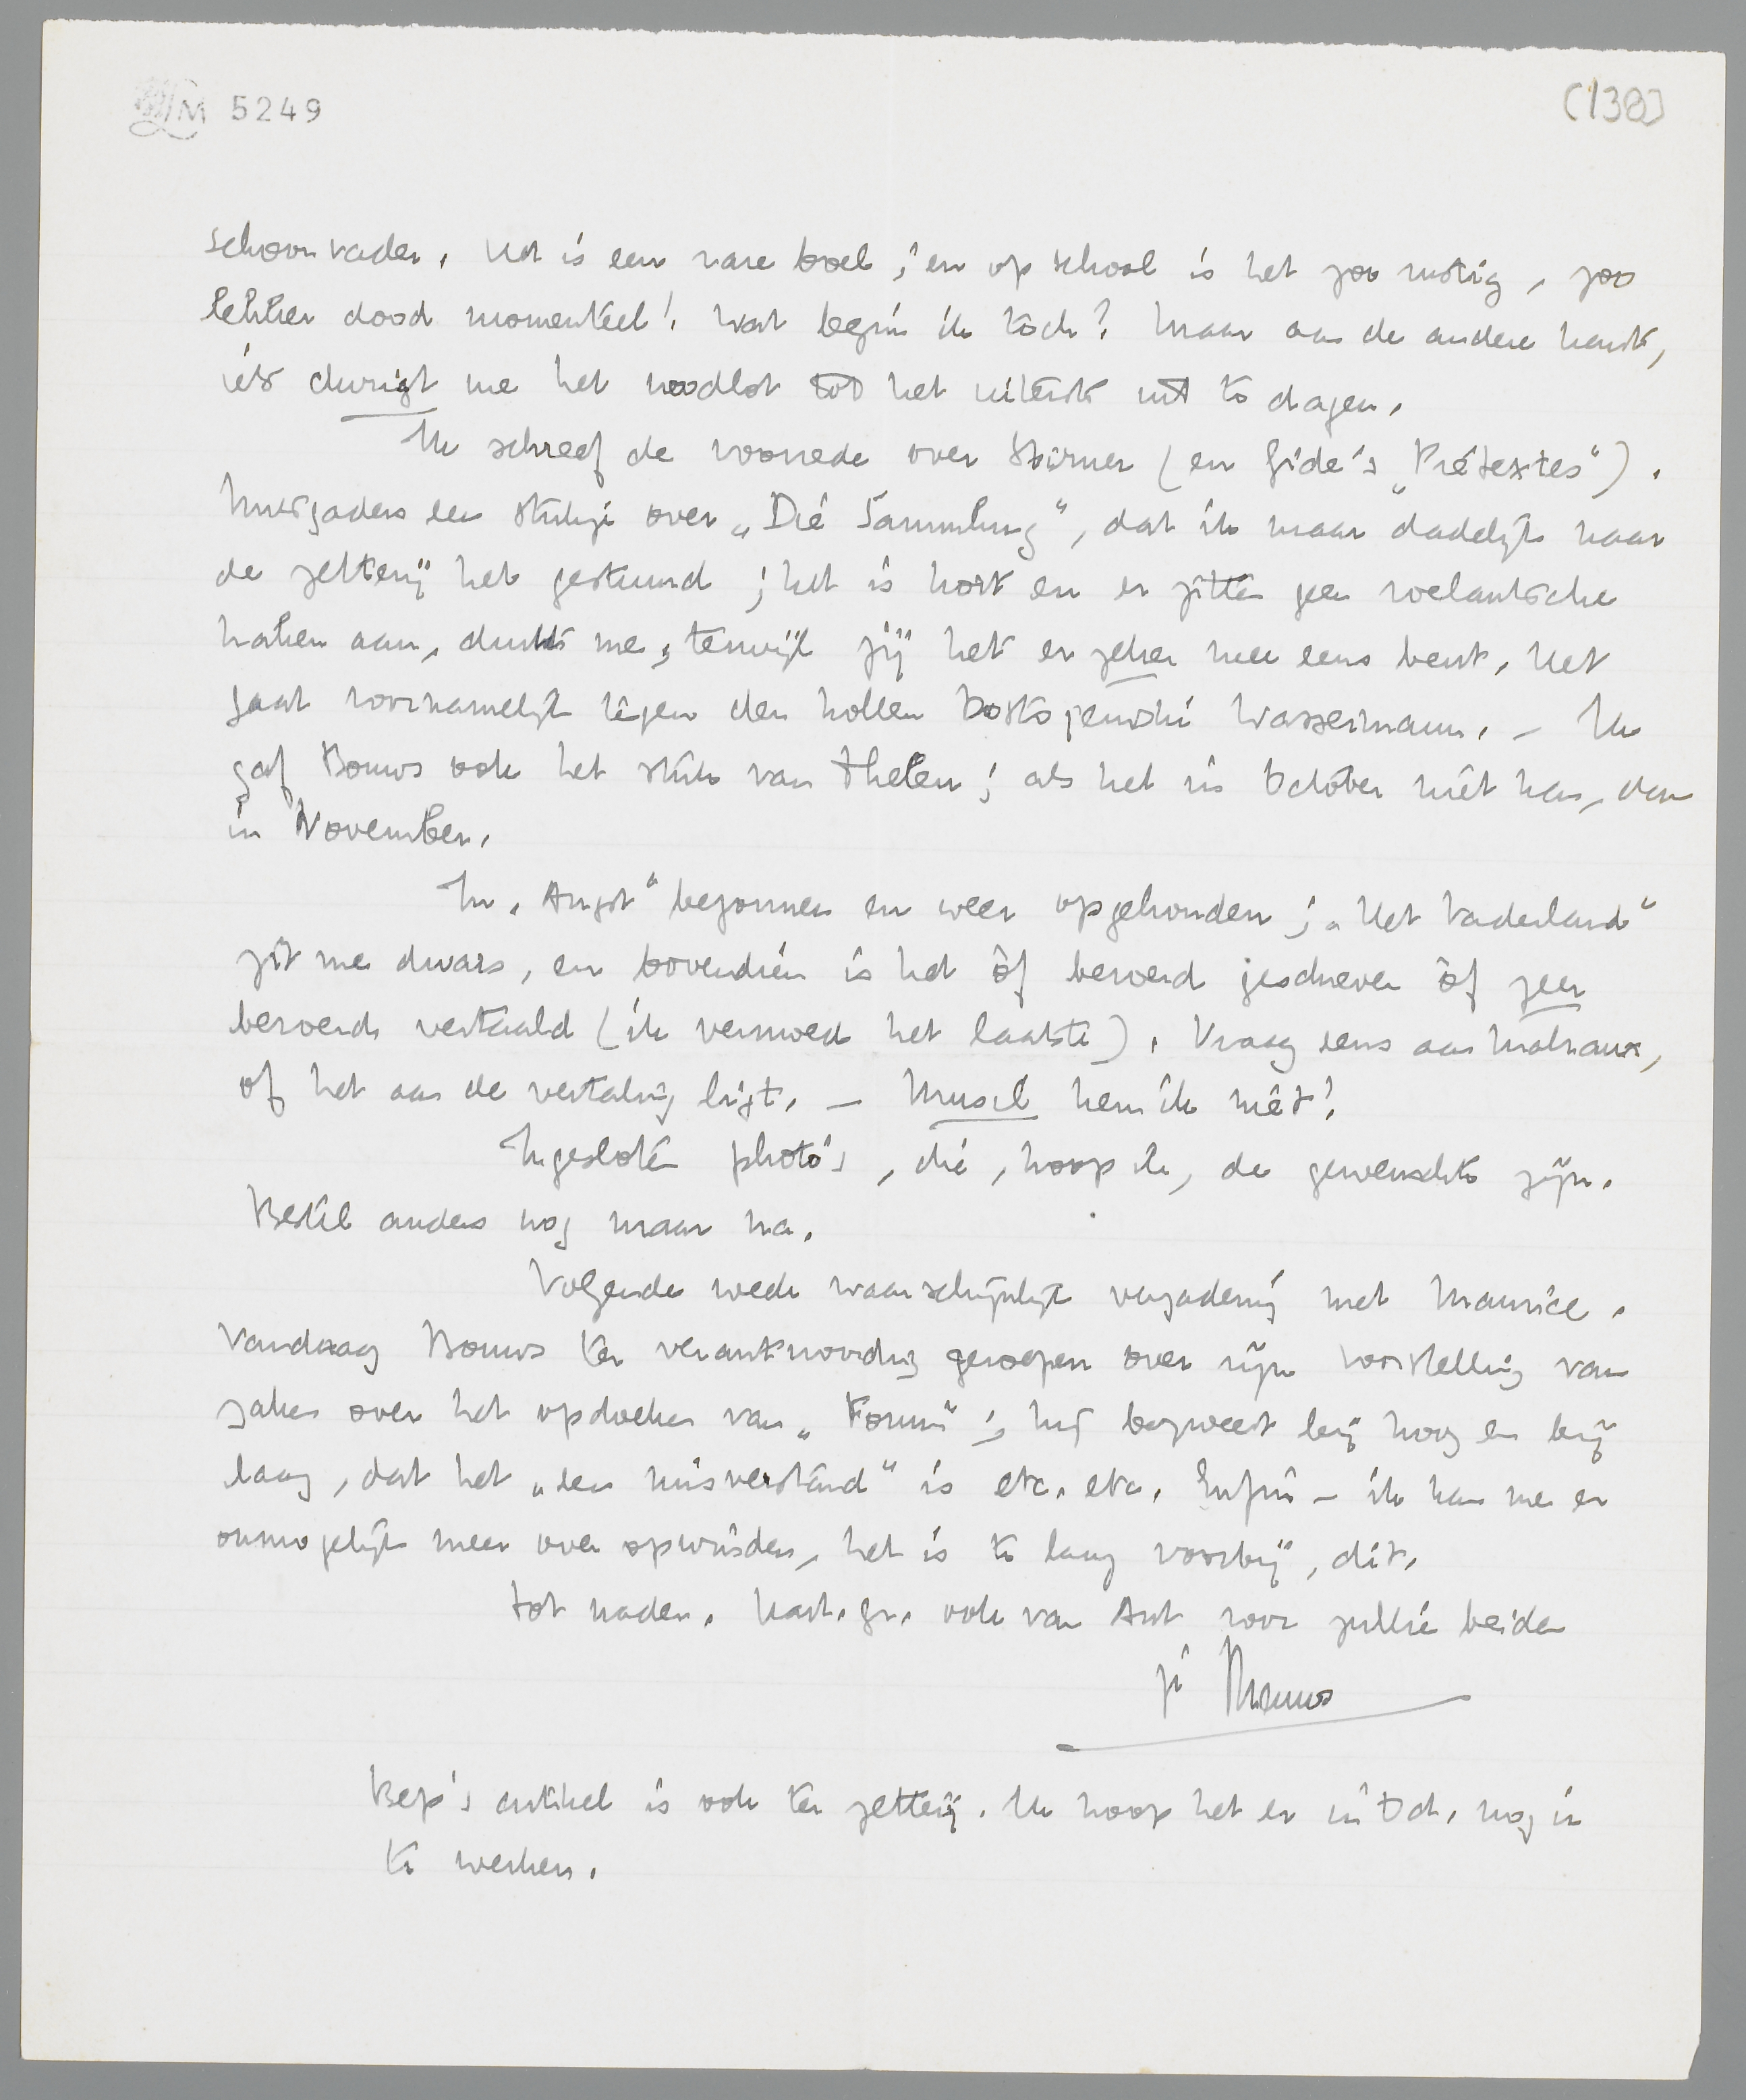 LM 5249
(138)
schoonvader. Het is een rare boel; en op school is het zoo rustig, zoo
lekker dood momenteel! Wat begin ik toch? Maar aan de andere kant,
iets dwingt me het noodlot tot het uiterste uit te dagen.
Ik schreef de voorrede over Stirner (en Gide's „Prétextes").
Insgelijks een stukje over „Die Sammlung", dat ik maar dadelijk naar
de zetterij heb gestuurd; het is kort en er zitten geen roelantsche
haken aan, dunkt me, terwijl jij het er zeker mee eens bent. Het
gaat voornamelijk tegen den hollen Dostojewski Wassermann. – Ik
gaf Bouws ook het stuk van Thelen; als het in October niet kan, dan
in November.
In „Angst" begonnen en weer opgehouden; „Het Vaderland"
zit me dwars, en bovendien is het òf beroerd geschreven òf zeer
beroerd vertaald (ik vermoed het laatste). Vraag eens aan Malraux,
of het aan de vertaling ligt. – Musil ken ik niet!
Ingesloten photo's, die, hoop ik, de gewenschte zijn.
Bestel anders nog maar na.
Volgende week waarschijnlijk vergadering met Maurice.
Vandaag Bouws ter verantwoording geroepen over zijn voorstelling van
zaken over het opdoeken van „Forum"; hij bezweert bij hoog en bij
laag, dat het „een misverstand" is etc. etc. Enfin – ik kan me er
onmogelijk meer over opwinden, het is te lang voorbij, dit.
Tot nader. Hart. gr. ook van Ant voor jullie beiden
je Menno
Bep's artikel is ook ter zetterij. Ik hoop het er in Oct. nog in
te werken.